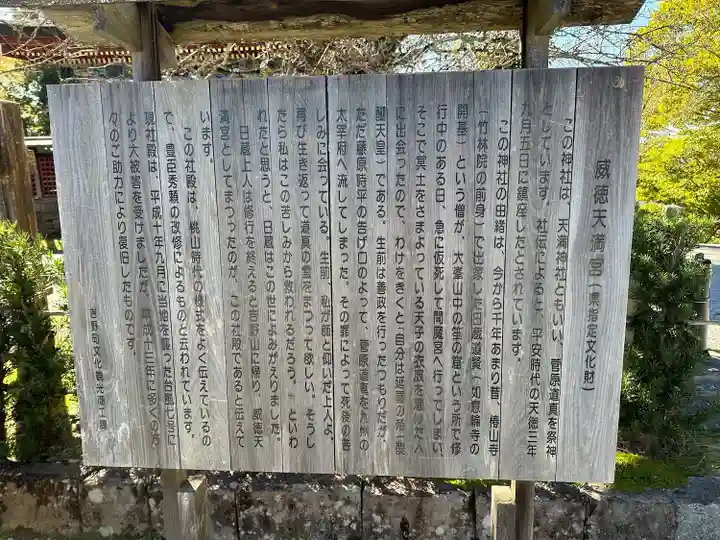 威徳天満宮(県指定文化財)
この神社は、天満神社ともいい、菅原道真を祭神
としています。社伝によると、平安時代の天徳三年
九月五日に鎮座したとされています。
この神社の由緒は、今から千年あまり昔、椿山寺
(竹林院の前身)で出家した日蔵道賢(如意輪寺の
開基)という僧が、大峯山中の笙の窟という所で修
行中のある日、急に仮死して閻魔宮へ行ってしまい、
そこで冥土をさまよっている天子の衣冠を着した人
に出会ったので、わけをきくと「自分は延喜の帝(醍
醐天皇)である。生前は善政を行ったつもりだが、
ただ藤原時平の告げ口のよって、菅原道真を九州の
太宰府へ流してしまった。その罪によって死後の苦
しみに会っている。生前、私が師と仰いだ上人よ、
再び生き返って道真の霊をまつって欲しい。そうし
たら私はこの苦しみから救われるだろう。」といわ
れたと思うと、日蔵はこの世によみがえりました。
日蔵上人は修行を終えると吉野山に帰り、威徳天
満宮としてまつったのが、この社殿であると伝えて
います。
この社殿は、桃山時代の様式をよく伝えているの
で、豊臣秀頼の改修によるものと云われています。
現社殿は、平成十年九月に当地を襲った台風七号に
より大被害を受けましたが、平成十三年に多くの方
々のご助力により復旧したものです。
吉野町文化観光商工課